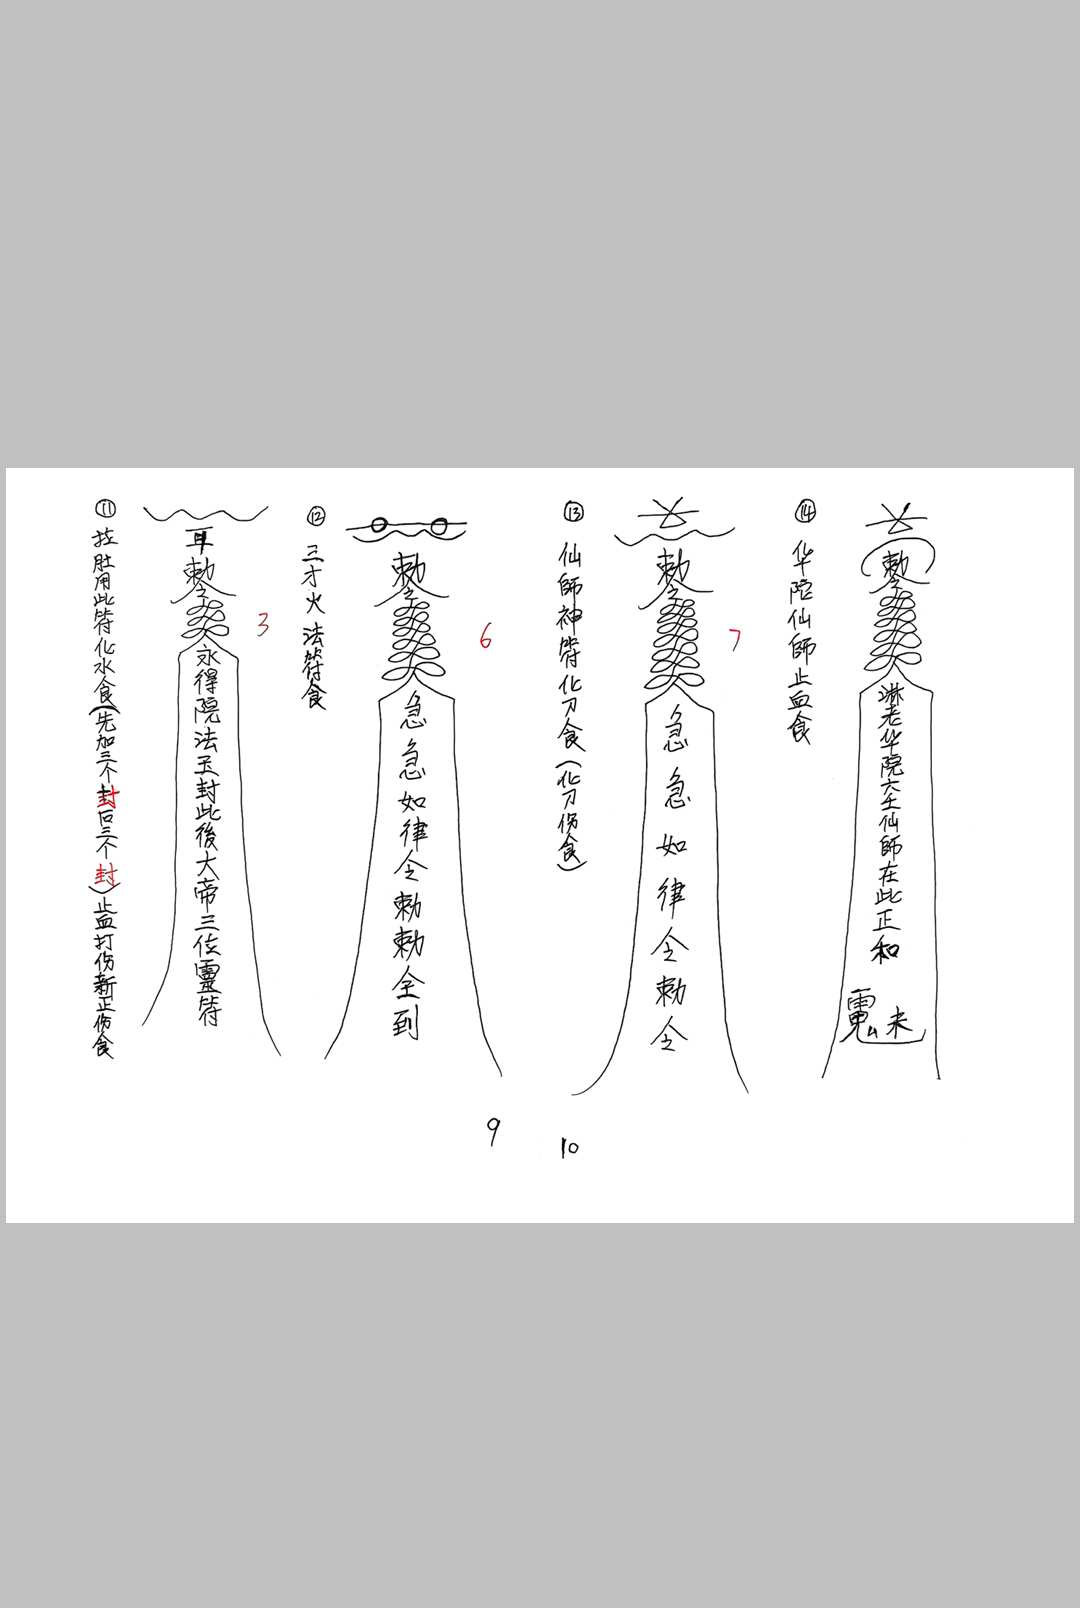 ⑪
拉肚用此符化水食(先加三个封后三个封)止血打伤新正伤食
耳
勅令
3
永得院法玉封此後大帝三位靈符
⑫
三才火法符食
勅令
6
急急如律令勅勅全到
⑬
仙師神符化刀食(化刀伤食)
勅令
7
急急如律令勅令
⑭
华陀仙師止血食
勅令
淋老华院六壬仙師在此正和
未
9
10